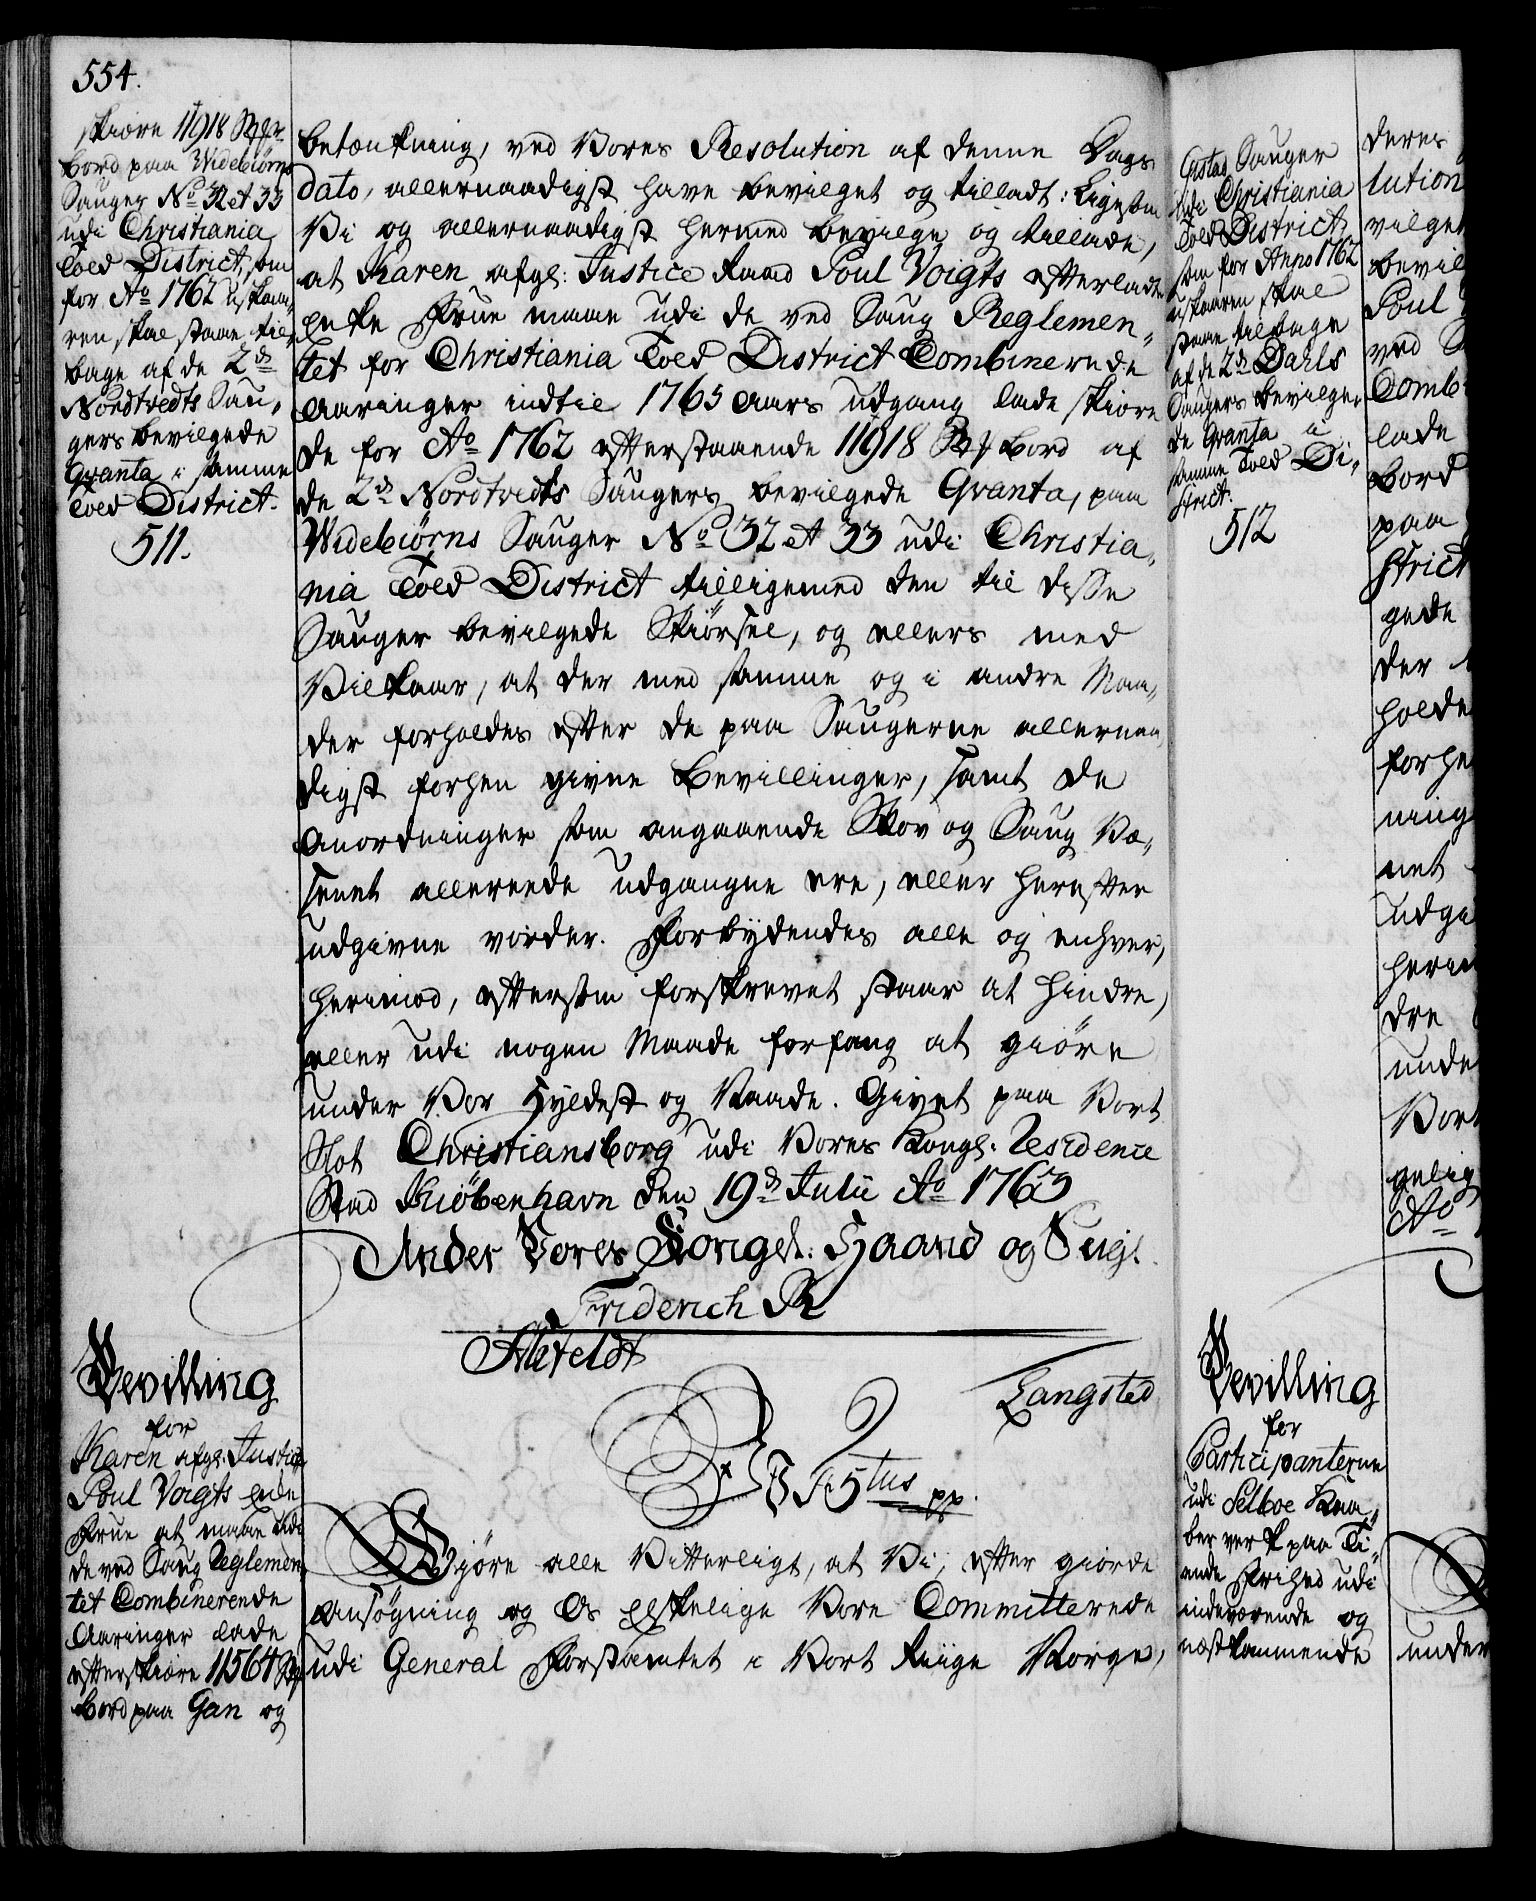 554.
skiære 11918 St
bord paa Widebiørns
Sauger No 32 et 33
udi Christiania
Told District, som
for Ao 1762 uskaa-
ren skal staae til-
bage af de 2de
Nordtvedts Sau-
gers bevilgede
Qvanta i samme
Told District.
511.
betænkning, ved Vores Resolution af denne Dags
Dato, allernaadigst have bevilget og tilladt: Ligesom
Vi og allernaadigst hermed bevilge og tillade,
at Karen afgl: Justice Raad Poul Voigts efterladte
Enke Frue maae udi de ved Saug Reglemen-
tet for Christiania Told District Combinerede
Aaringer indtil 1765 Aars udgang lade skiære
de for Ao 1762 efterstaaende 11918 St bord af
de 2de Nordtvedts Saugers bevilgede Qvanta, paa
Widebiørns Sauger No 32 et 33 udi Christia-
nia Told District tilligemed den til disse
Sauger bevilgede Skiørsel, og ellers med
Vilkaar, at der med samme og i andre Maa-
der forholdes efter de paa Saugerne allernaa-
digst forhen givne Bevillinger, samt de
Anordninger som angaaende Skov og Saug Væ-
senet allereede udgangne ere, eller herefter
udgivne vorder. Forbydendes alle og enhver,
herimod, eftersom forskrevet staar at hindre,
eller udi nogen Maade forfang at giøre
under Vor Hyldest og Naade. Givet paa Vort
Slot Christiansborg udi Vores Kongl: Residence
Stad Kiøbenhavn den 19de Julii Ao 1763
Under Vores Kongel: Haand og Seigl.
Friderich R
Ahlefeldt
Langsted
Bevilling
for
Karen afgl: Justice
Poul Voigts Enke
Frue at maae udi
de ved Saug Reglemen-
tet Combinerende
Aaringer lade
efterskiære 11564 St
bord paa Gan og
Wi Fr 5tus pp.
Giøre alle Vitterligt, at Vi, efter giorde
Ansøgning og Os Elskelige Vore Committerede
udi General Forstamtet i Vort Riige Norge,
Sauger
udi Christiania
Told District
som for Anno 1762
uskaaren skal
staae tilbage
af de 2de Dahls
Saugers bevilge-
de Qvanta i
samme Told Di-
strict.
512
Bevilling
for
Participanterne
udi Selboe Kaa-
berverk paa Ti-
ende Frihed udi
indeværende og
næstkommende
deres
lution
vilget
bevil
Poul
ved S
Combi
lade
bord
paa
strict
gede
der
holde
forhe
ning
net
udgi
herim
dre
unde
Vort
gelig
Ao
under